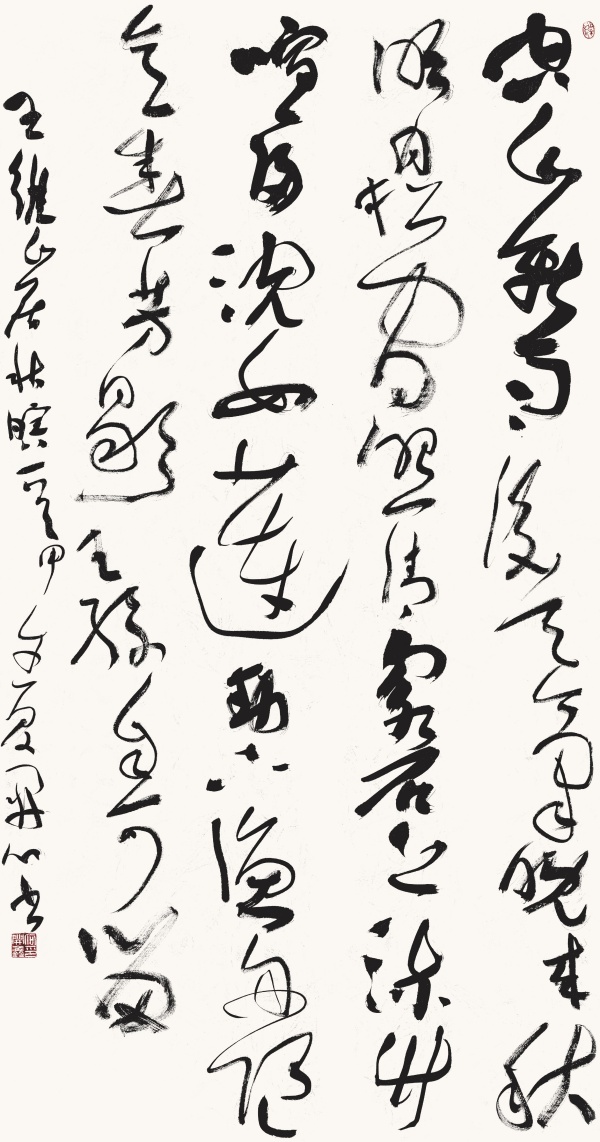 空山新雨後天氣晚來秋
明月松間照清泉石上流竹
喧歸浣女蓮動下漁舟隨
意春芳歇王孫自可留
王維山居秋暝一首甲午夏開心书